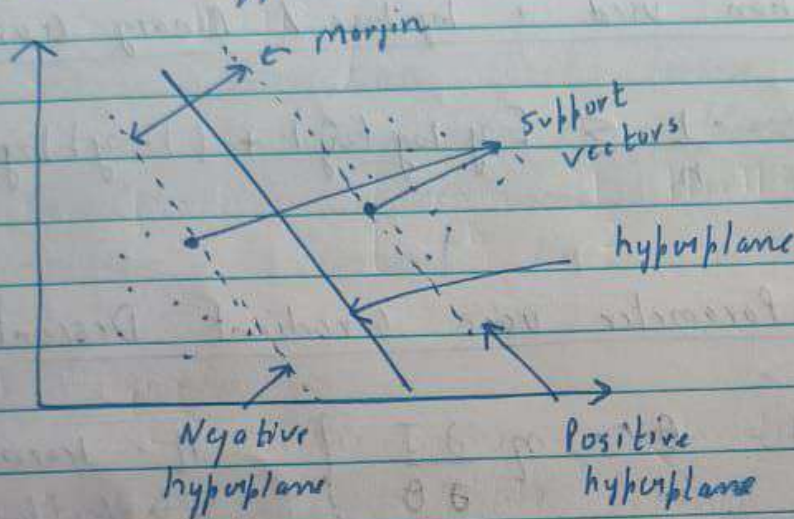 Margin
support
vectors
hyperplane
Negative
hyperplane
Positive
hyperplane